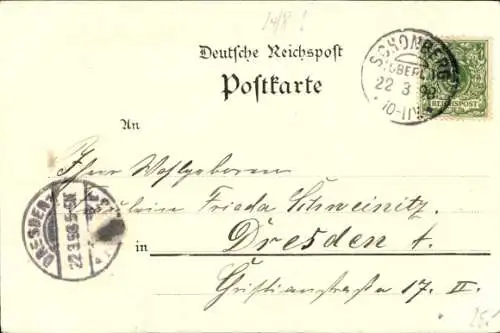 14/8!
Deutsche Reichspost
Postkarte
SCHÖNBERG
(OBERL
22 3 98
10-11V.
REICHSPOST
An
Ihrer Wohlgeboren
Fräulein Frieda Schweinitz
in Dresden A.
Christianstraße 17. II.
DRESDEN-
22.3.98.5-6N
25.-